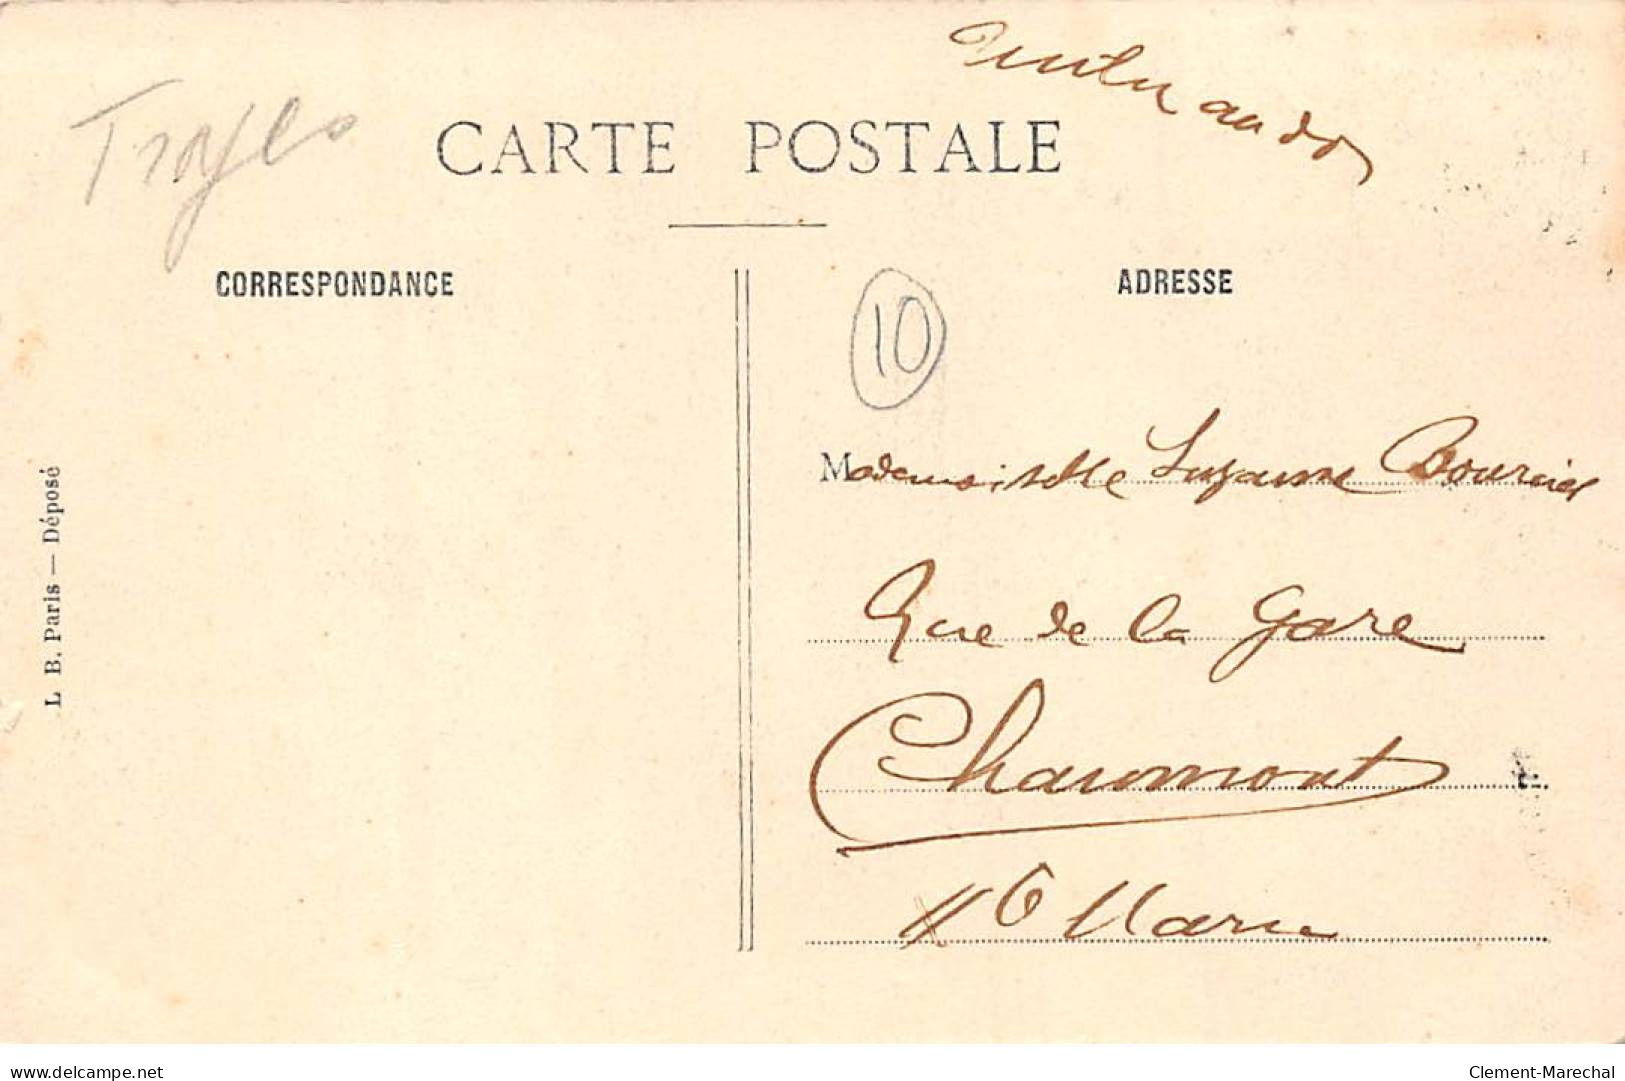 Timbre au dos
Troyes
CARTE POSTALE
CORRESPONDANCE
ADRESSE
10
Mademoiselle Suzanne Bourcier
Rue de la Gare
Chaumont
Hte Marne
L. B. Paris — Déposé
delcampe.net
Clement-Marechal